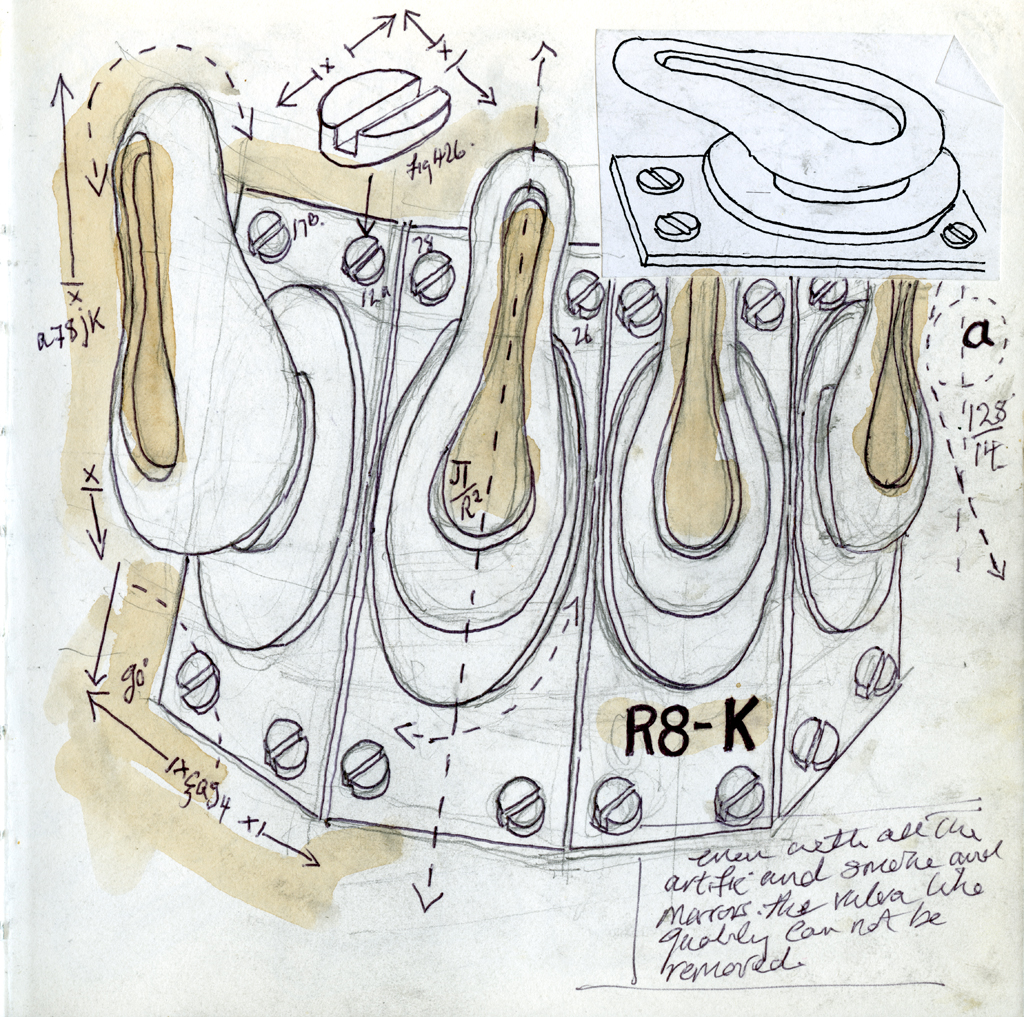 x
x
fig 426.
17B.
12a
78
26
x
a78jK
a
128
14
π
R²
x
90°
R8-K
1x
ag4
x1
even with all the
artific and smoke and
mirrors. the vulva like
quality can not be
removed.